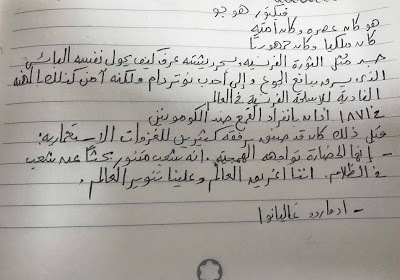 فيكتور هوجو
هو كان عصره وكان أمته
كان ملكيا وكان جمهوريا
جسد مُثل الثورة الفرنسية وبريشته عرف كيف يحول نفسه البائس
الذي يسرق بدافع الجوع وإلى أحدب نوتردام ولكنه آمن كذلك بالمهنة
الفادية للأسلحة الفرنسية في العالم
في ١٨٧١ أدان بانفراد القمع ضد الكومونيين
قبل ذلك كان قد صفق رفقة كثيرين للغزوات الاستعمارية:
- إنها الحضارة تواجه الهمجية. إنه شعب متنور يبحث عن شعب
في الظلام. إننا إغريق العالم وعلينا تنوير العالم.
- ادواردو غاليانوا